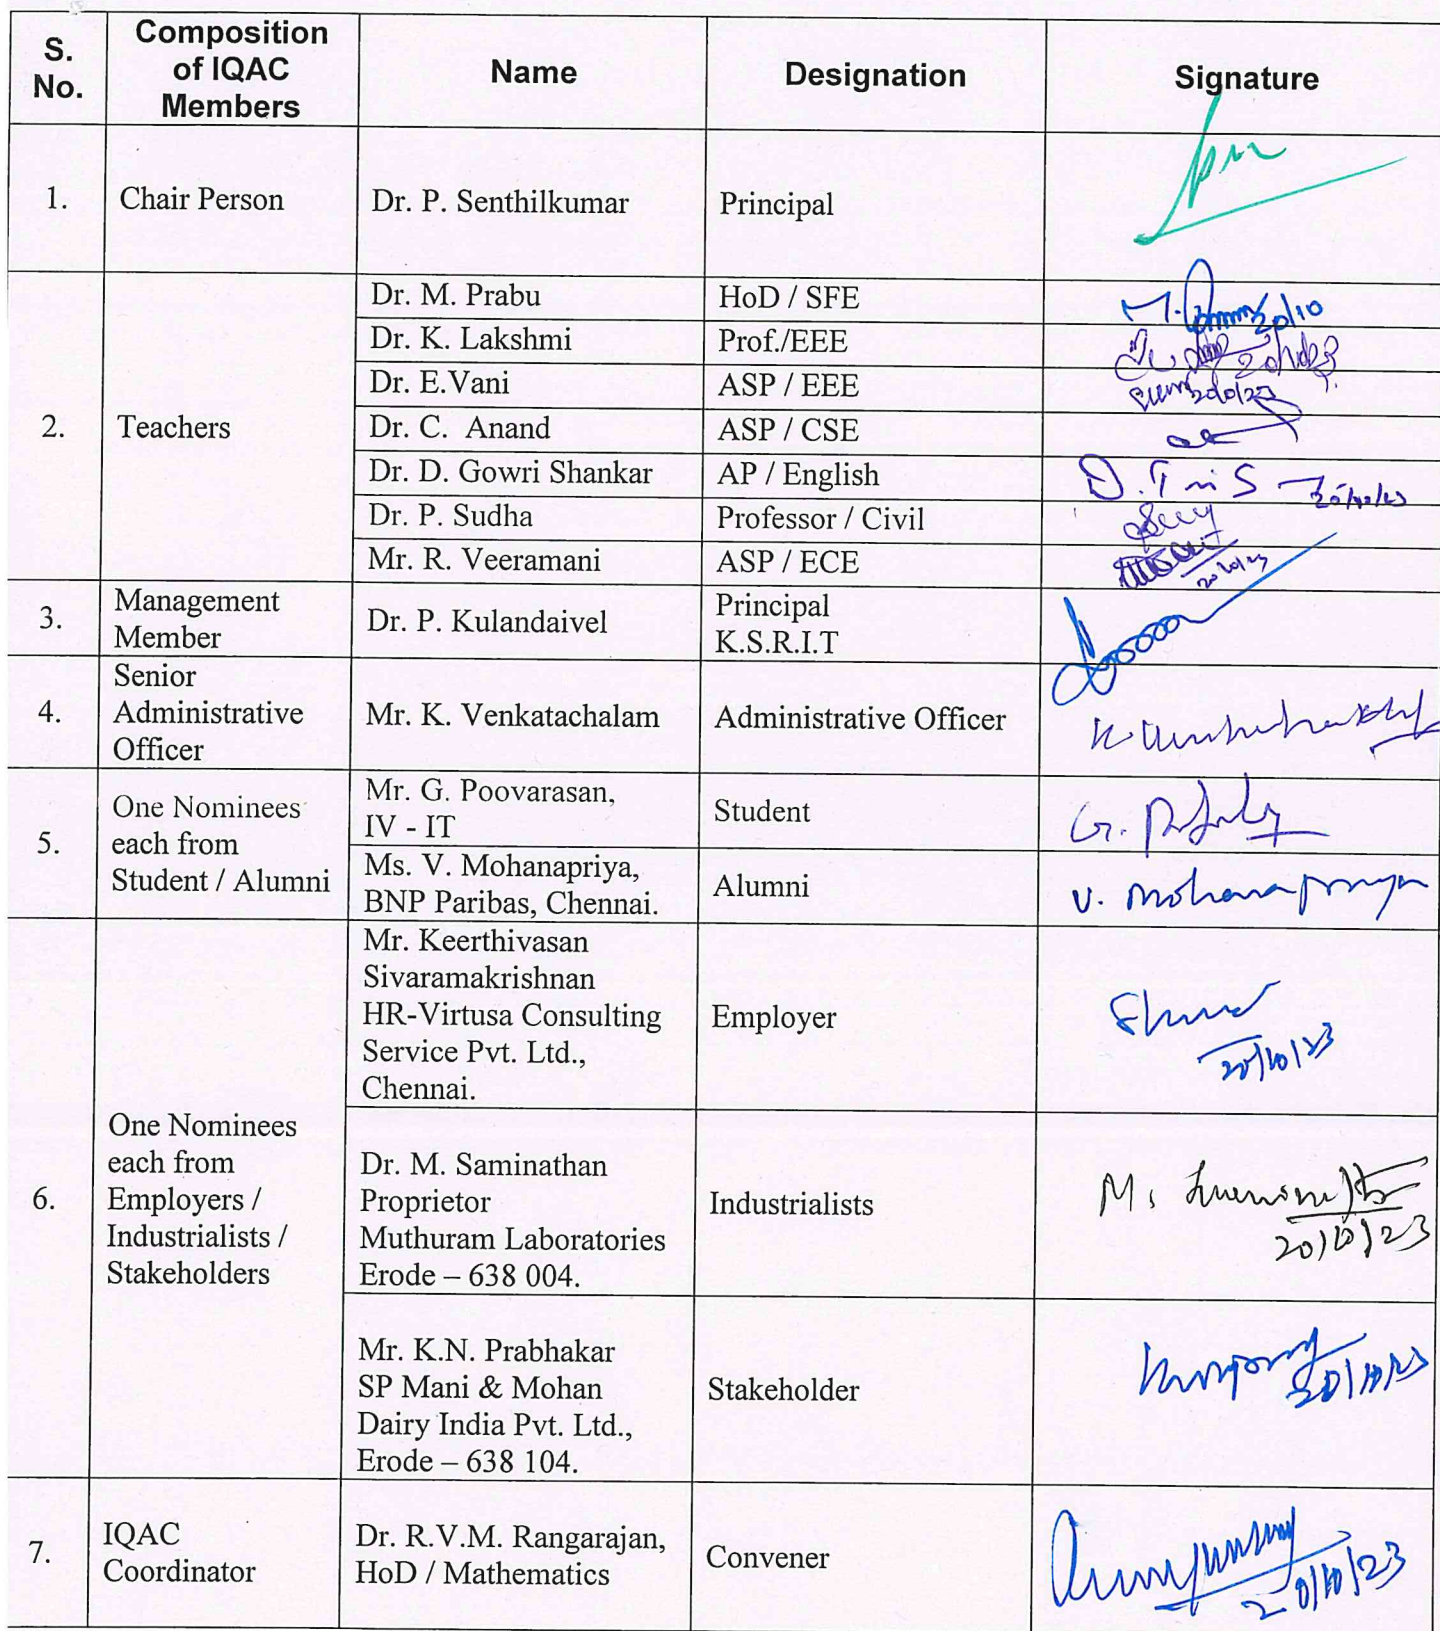 S. No.
Composition of IQAC Members
Name
Designation
Signature
1.
Chair Person
Dr. P. Senthilkumar
Principal
2.
Teachers
Dr. M. Prabu
HoD / SFE
M.
20/10
Dr. K. Lakshmi
Prof./EEE
Dr. E.Vani
ASP / EEE
Dr. C. Anand
ASP / CSE
Dr. D. Gowri Shankar
AP / English
Dr. P. Sudha
Professor / Civil
Mr. R. Veeramani
ASP / ECE
3.
Management
Member
Dr. P. Kulandaivel
Principal
K.S.R.I.T
4.
Senior
Administrative
Officer
Mr. K. Venkatachalam
Administrative Officer
5.
One Nominees
each from
Student / Alumni
Mr. G. Poovarasan,
IV - IT
Student
G.
Ms. V. Mohanapriya,
BNP Paribas, Chennai.
Alumni
V. Mohanapriya
6.
One Nominees
each from
Employers /
Industrialists /
Stakeholders
Mr. Keerthivasan
Sivaramakrishnan
HR-Virtusa Consulting
Service Pvt. Ltd.,
Chennai.
Employer
20/10/23
Dr. M. Saminathan
Proprietor
Muthuram Laboratories
Erode – 638 004.
Industrialists
M.
20/10/23
Mr. K.N. Prabhakar
SP Mani & Mohan
Dairy India Pvt. Ltd.,
Erode – 638 104.
Stakeholder
20/10/23
7.
IQAC
Coordinator
Dr. R.V.M. Rangarajan,
HoD / Mathematics
Convener
20/10/23